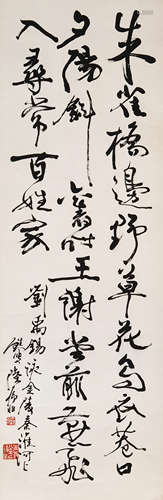 朱雀橋邊野草花烏衣巷口
夕陽斜舊時王謝堂前燕飛
入尋常百姓家 劉禹錫詠金陵秦淮